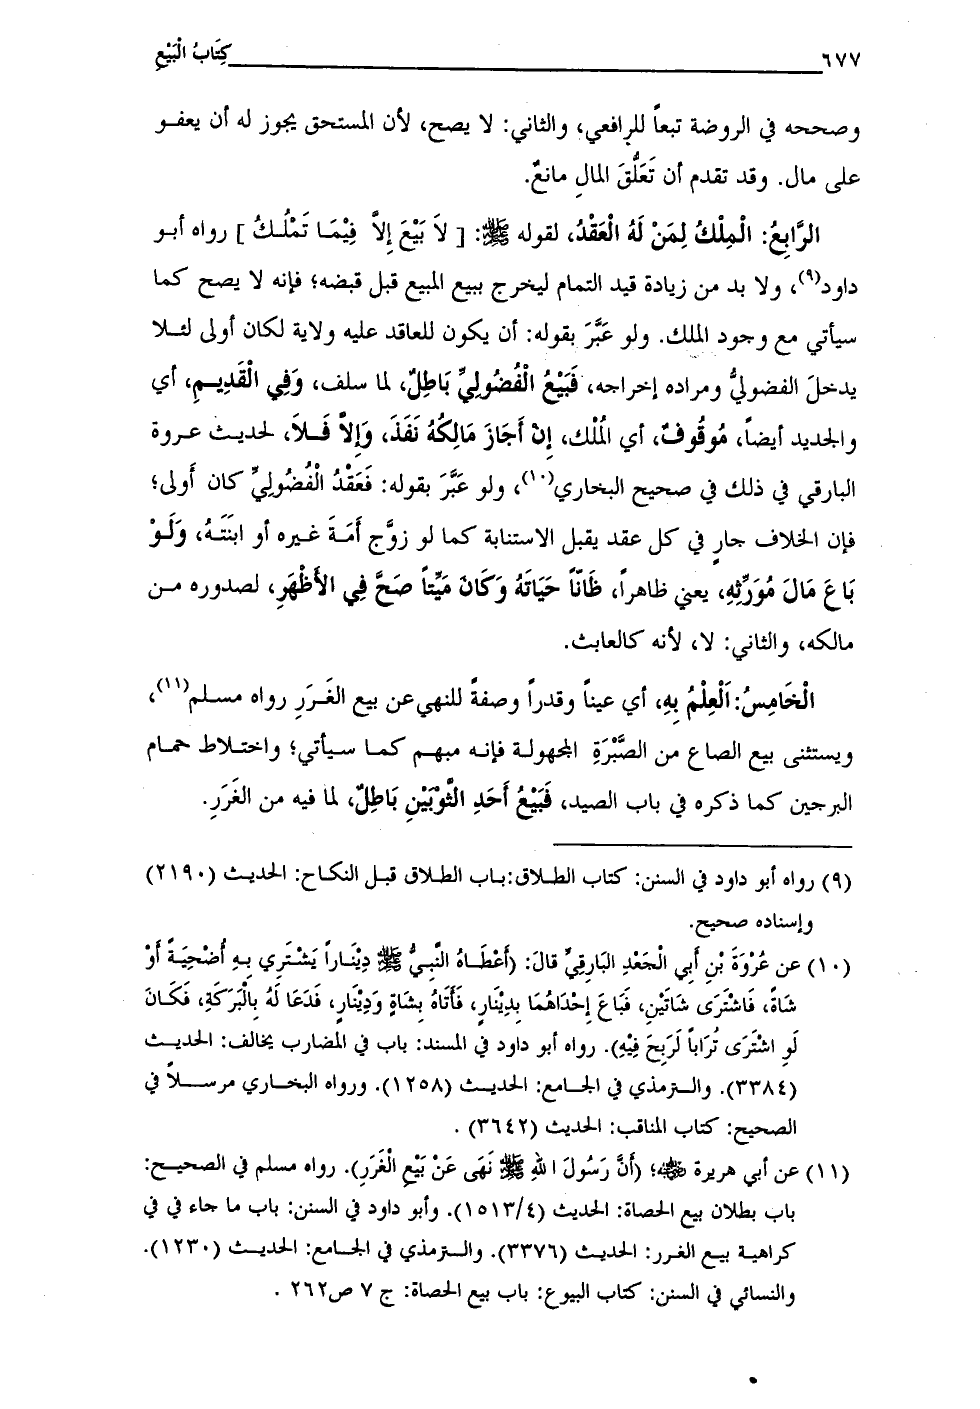 ٦٧٧ كِتَابُ الْبَيْعِ
وصححه في الروضة تبعاً للرافعي، والثاني: لا يصح، لأن المستحق يجوز له أن يعفـو
على مال. وقد تقدم أن تَعَلُّقَ المالِ مانعٌ.
الرَّابِعُ: الْمِلْكُ لِمَنْ لَهُ الْعَقْدُ، لقوله ﷺ: [ لاَ بَيْعَ إِلاَّ فِيْمَـا تَمْلُـكُ ] رواه أبـو
داود(٩)، ولا بد من زيادة قيد التمام ليخرج ببيع المبيع قبل قبضه؛ فإنه لا يصح كما
سيأتي مع وجود الملك. ولو عَبَّرَ بقوله: أن يكون للعاقد عليه ولاية لكان أولى لئـلا
يدخلَ الفضوليُّ ومراده إخراجه، فَبَيْعُ الْفُضُولِيِّ بَاطِلٌ، لما سلف، وَفِي الْقَدِيـمِ، أي
والجديد أيضاً، مَوْقُوفٌ، أي المُلْك، إِنْ أَجَازَ مَالِكُهُ نَفَذَ، وَإِلاَّ فَـلاَ، لحديث عروة
البارقي في ذلك في صحيح البخاري(١٠)، ولو عبَّرَ بقوله: فَعَقْدُ الْفُضُولِيِّ كان أولى؛
فإن الخلاف جارٍ في كل عقد يقبل الاستنابة كما لو زوَّج أَمَـةَ غـيره أو ابنَتَـهُ، وَلَـوْ
بَاعَ مَالَ مُوَرِّثِهِ، يعني ظاهراً، ظَانّاً حَيَاتَهُ وَكَانَ مَيِّتاً صَحَّ فِي الأَظْهَرِ، لصدوره مـن
مالكه، والثاني: لا، لأنه كالعابث.
الْخَامِسُ: اَلْعِلْمُ بِهِ، أي عيناً وقدراً وصفةً للنهي عن بيع الغَـرَرِ رواه مسـلم(١١)،
ويستثنى بيع الصاع من الصَّبْرَةِ المجهولـة فإنـه مبهـم كمـا سـيأتي؛ واختـلاط حمـام
البرجين كما ذكره في باب الصيد، فَبَيْعُ أَحَدِ الثَّوْبَيْنِ بَاطِلٌ، لما فيه من الغَرَرِ.
(٩) رواه أبو داود في السنن: كتاب الطـلاق:بـاب الطـلاق قبـل النكـاح: الحديـث (٢١٩٠)
وإسناده صحيح.
(١٠) عن عُرْوَةَ بْنِ أَبِي الْجَعْدِ البَارِقِيِّ قالَ: (أَعْطَـاهُ النَّبِـيُّ ﷺ دِيْنَـاراً يَشْـتَرِي بِـهِ أُضْحِيَـةً أَوْ
شَاةً، فَاشْتَرَى شَاتَيْنِ، فَبَاعَ إِحْدَاهُمَا بِدِيْنَارٍ، فَأَتَاهُ بِشَاةٍ وَدِيْنَارٍ، فَدَعَا لَهُ بِالْبَرَكَةِ، فَكَـانَ
لَوِ اشْتَرَى تُرَاباً لَرَبِحَ فِيْهِ). رواه أبو داود في المسند: باب في المضارب يخالف: الحديـث
(٣٣٨٤). والـترمذي في الجـامع: الحديـث (١٢٥٨). ورواه البخـاري مرسـلاً في
الصحيح: كتاب المناقب: الحديث (٣٦٤٢) .
(١١) عن أبي هريرة ﷺ؛ (أَنَّ رَسُولَ اللهِ ﷺ نَهَى عَنْ بَيْعِ الْغَرَرِ). رواه مسلم في الصحيـح:
باب بطلان بيع الحصاة: الحديث (١٥١٣/٤). وأبو داود في السنن: باب ما جاء في في
كراهيـة بيـع الغرر: الحديـث (٣٣٧٦). والـترمذي في الجـامع: الحديـث (١٢٣٠).
والنسائي في السنن: كتاب البيوع: باب بيع الحصاة: ج ٧ ص٢٦٢ .